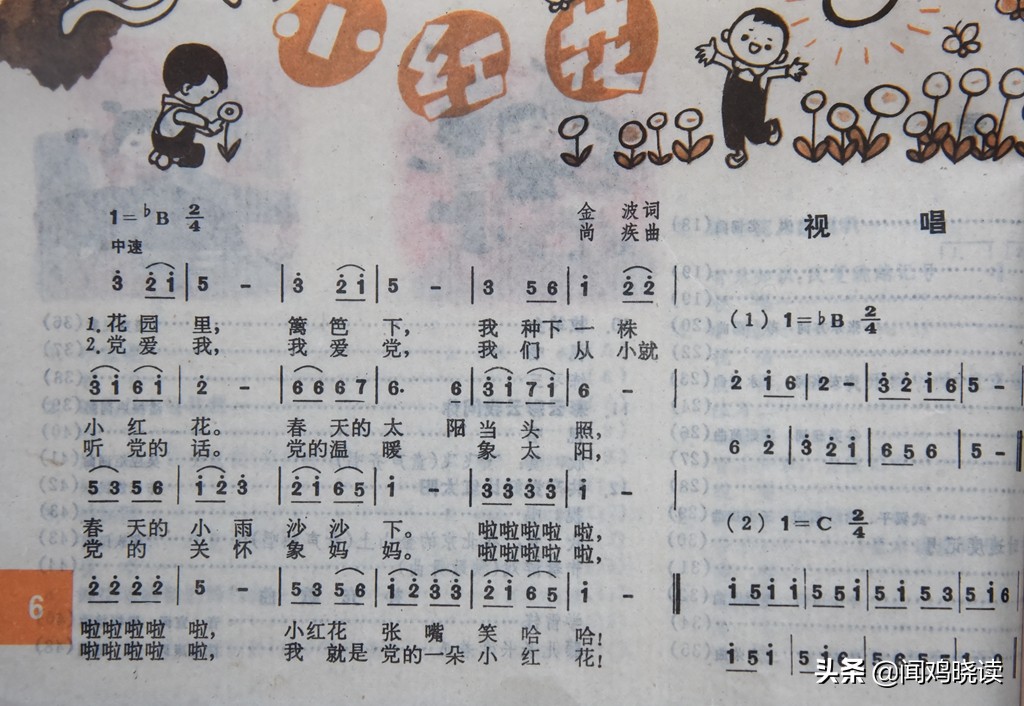 小红花
1=♭B 2/4
中速
金波词
尚疾曲
3̇ 2̇1̇ | 5 - | 3̇ 2̇1̇ | 5 - | 3 56 | 1̇ 2̇2̇ |
1.花园里, 篱笆下, 我种下一株
2.党爱我, 我爱党, 我们从小就
3̇1̇61̇ | 2̇ - | 6667 | 6· 6 | 3̇1̇71̇ | 6 - |
小红花。 春天的太阳当头照,
听党的话。 党的温暖象太阳,
5356 | 1̇2̇3̇ | 2̇1̇65 | 1̇ - | 3̇3̇3̇3̇ | 1̇ - |
春天的小雨沙沙下。 啦啦啦啦啦,
党的关怀象妈妈。 啦啦啦啦啦,
2̇2̇2̇2̇ | 5 - | 5356 | 1̇2̇3̇3̇ | 2̇1̇65 | 1̇ -
啦啦啦啦啦, 小红花张嘴笑哈哈!
啦啦啦啦啦, 我就是党的一朵小红花!
6
视唱
(1) 1=♭B 2/4
2̇ 1̇6 | 2̇ - | 3̇2̇1̇6 | 5 -
6 2̇ | 3̇ 2̇1̇ | 65 6 | 5 -
(2) 1=C 2/4
1̇51̇1̇ | 551̇ | 51̇53 | 51̇6
1̇51̇
头条 @闻鸡晓读